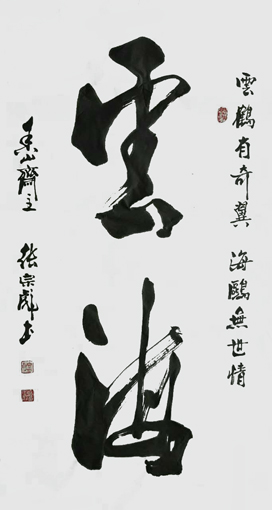 雲鶴有奇翼 海鷗無世情
雲海
泰山齋主 張宗彪書